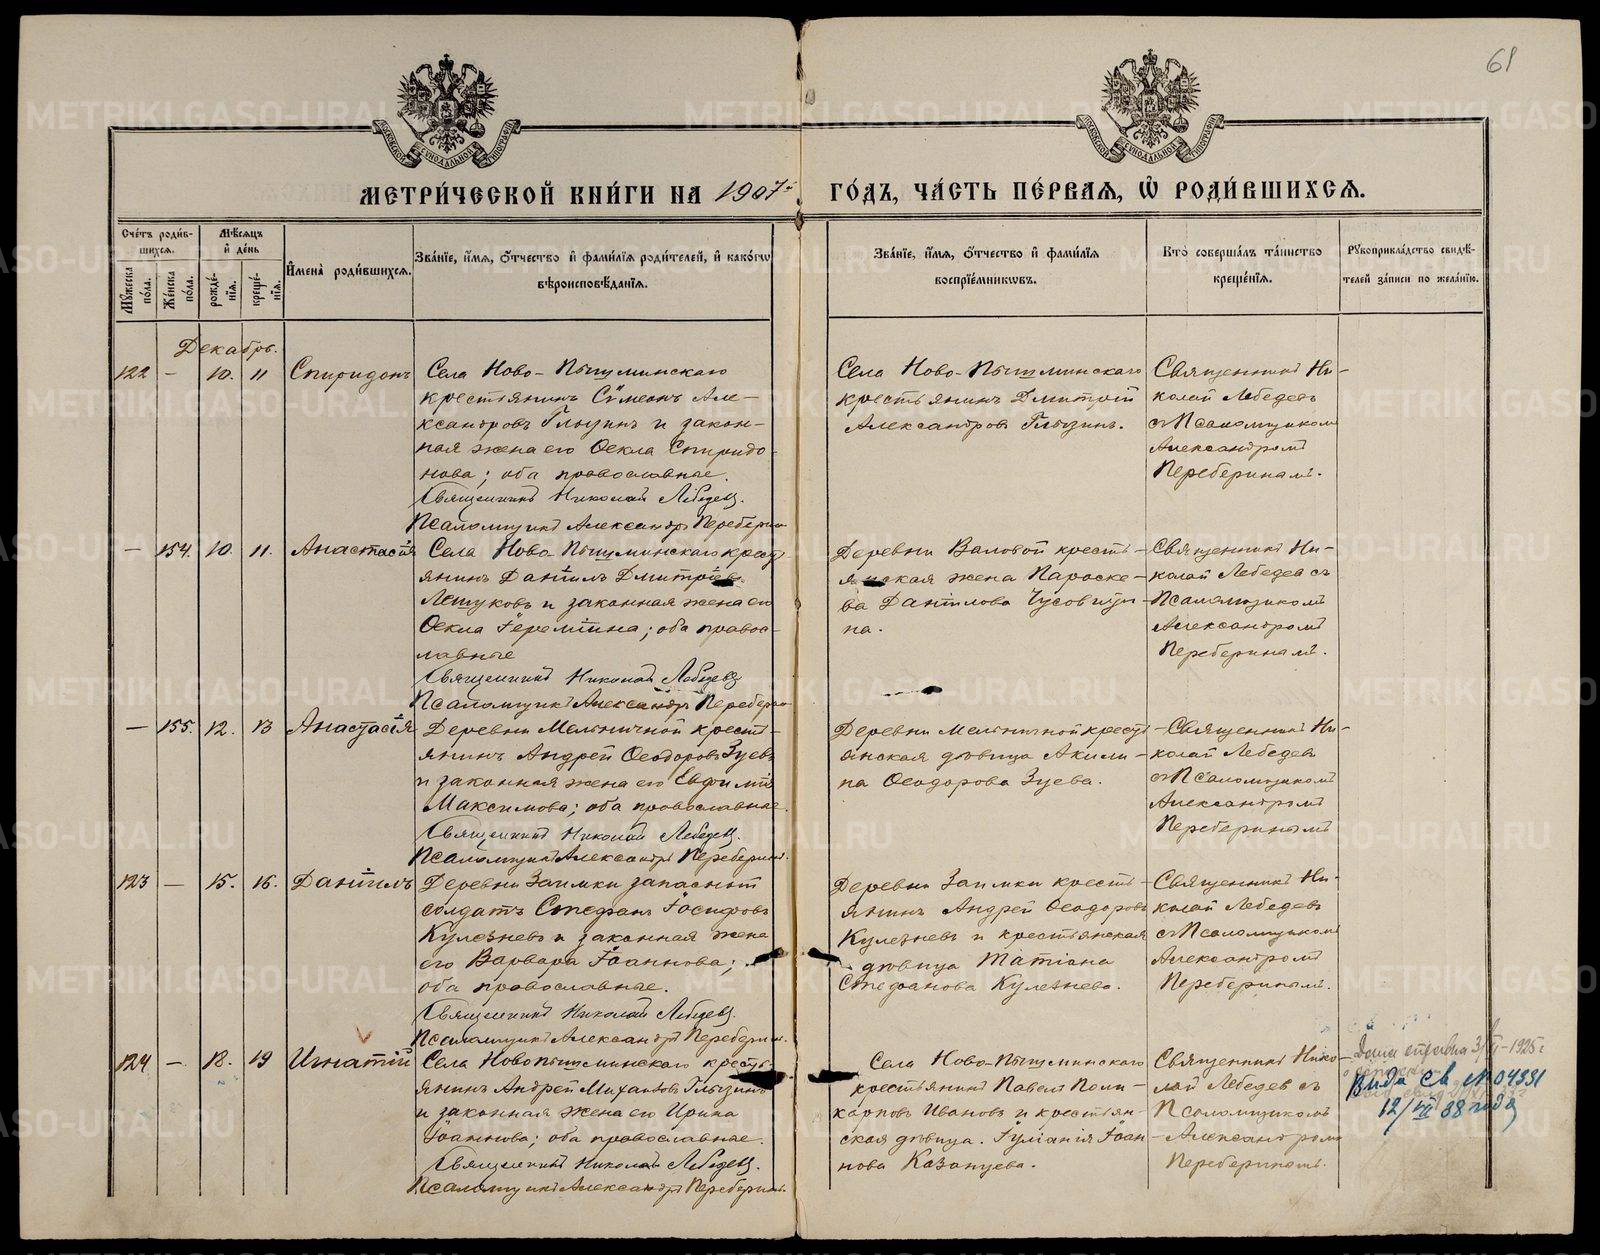 61
МОСКОВСКОЙ СѴНОДАЛЬНОЙ ТИПОГРАФІИ
МОСКОВСКОЙ СѴНОДАЛЬНОЙ ТИПОГРАФІИ
МЕТРИ́ЧЕСКОЙ КНИ́ГИ НА 1907й ГО́ДЪ, ЧА́СТЬ ПЕ́РВАЯ, Ѽ РОДИ́ВШИХСЯ.
Сче́тъ роди́вшихся.
Мꙋ́жеска по́ла.
Же́нска по́ла.
Мѣ́сяцъ и҆ де́нь
рожде́нїя.
креще́нїя.
И҆мена̀ роди́вшихся.
Зва́нїе, и҆́мя, ѻ҆́тчество и҆ фами́лїя роди́телей, и҆ како́гѡ вѣроисповѣ́данїя.
Зва́нїе, и҆́мя, ѻ҆́тчество и҆ фами́лїя воспрїе́мникѡвъ.
Кто̀ соверша́лъ та́инство креще́нїя.
Рꙋкоприкла́дство свидѣ́телей за́писи по жела́нїю.
Декабрь.
122 — 10. 11 Спиридонъ
Села Ново-Пышминскаго
крестьянинъ Сѵмеонъ Але-
ксандровъ Глызинъ и закон-
ная жена его Ѳекла Спиридо-
нова; оба православные.
Священникъ Николай Лебедевъ.
Псаломщикъ Александръ Переберинъ
Села Ново-Пышминскаго
крестьянинъ Дмитрій
Александровъ Глызинъ.
Священникъ Ни-
колай Лебедевъ
съ Псаломщикомъ
Александромъ
Переберинымъ.
— 154. 10. 11. Анастасія
Села Ново-Пышминскаго кресть
янинъ Даніилъ Дмитріевъ
Летуковъ и законная жена его
Ѳекла Іереміина; оба правос-
лавные
Священникъ Николай Лебедевъ
Псаломщикъ Александръ Переберинъ
Деревни Валовой кресть-
янская жена Параске-
ва Данілова Чусовити-
на.
Священникъ Ни-
колай Лебедевъ съ
Псаломщикомъ
Александромъ
Переберинымъ.
— 155. 12. 13 Анастасія
Деревни Мельничной кресть-
янинъ Андрей Ѳеодоровъ Зуевъ
и законная жена его Евфимія
Максимова; оба православные.
Священникъ Николай Лебедевъ.
Псаломщикъ Александръ Переберинъ.
Деревни Мельничной кресть-
янская дѣвица Акили-
на Ѳеодорова Зуева.
Священникъ Ни-
колай Лебедевъ
съ Псаломщикомъ
Александромъ
Переберинымъ
123 — 15. 16. Даніилъ
Деревни Заимки запасный
солдатъ Стефанъ Іосифовъ
Кулезневъ и законная жена
его Варвара Іоаннова;
оба православные.
Священникъ Николай Лебедевъ.
Псаломщикъ Александръ Переберинъ.
Деревни Заимки кресть-
янинъ Андрей Ѳеодоровъ
Кулезневъ и крестьянская
дѣвица Татіана
Стефанова Кулезнева.
Священникъ Ни-
колай Лебедевъ
съ Псаломщикомъ
Александромъ
Переберинымъ.
124 — 18. 19 Игнатій
Села Новопышминскаго кресть
янинъ Андрей Михаиловъ Глызинъ
и законная жена его Ирина
Іоаннова; оба православные.
Священникъ Николай Лебедевъ.
Псаломщикъ Александръ Переберинъ.
Села Ново-Пышминскаго
крестьянинъ Павелъ Поли-
карповъ Ивановъ и крестьян-
ская дѣвица Іуліанія Іоан-
нова Казанцева.
Священникъ Нико-
лай Лебедевъ съ
Псаломщикомъ
Александромъ
Переберинымъ.
1925 г
Выда св №04331
12/VI 38 года